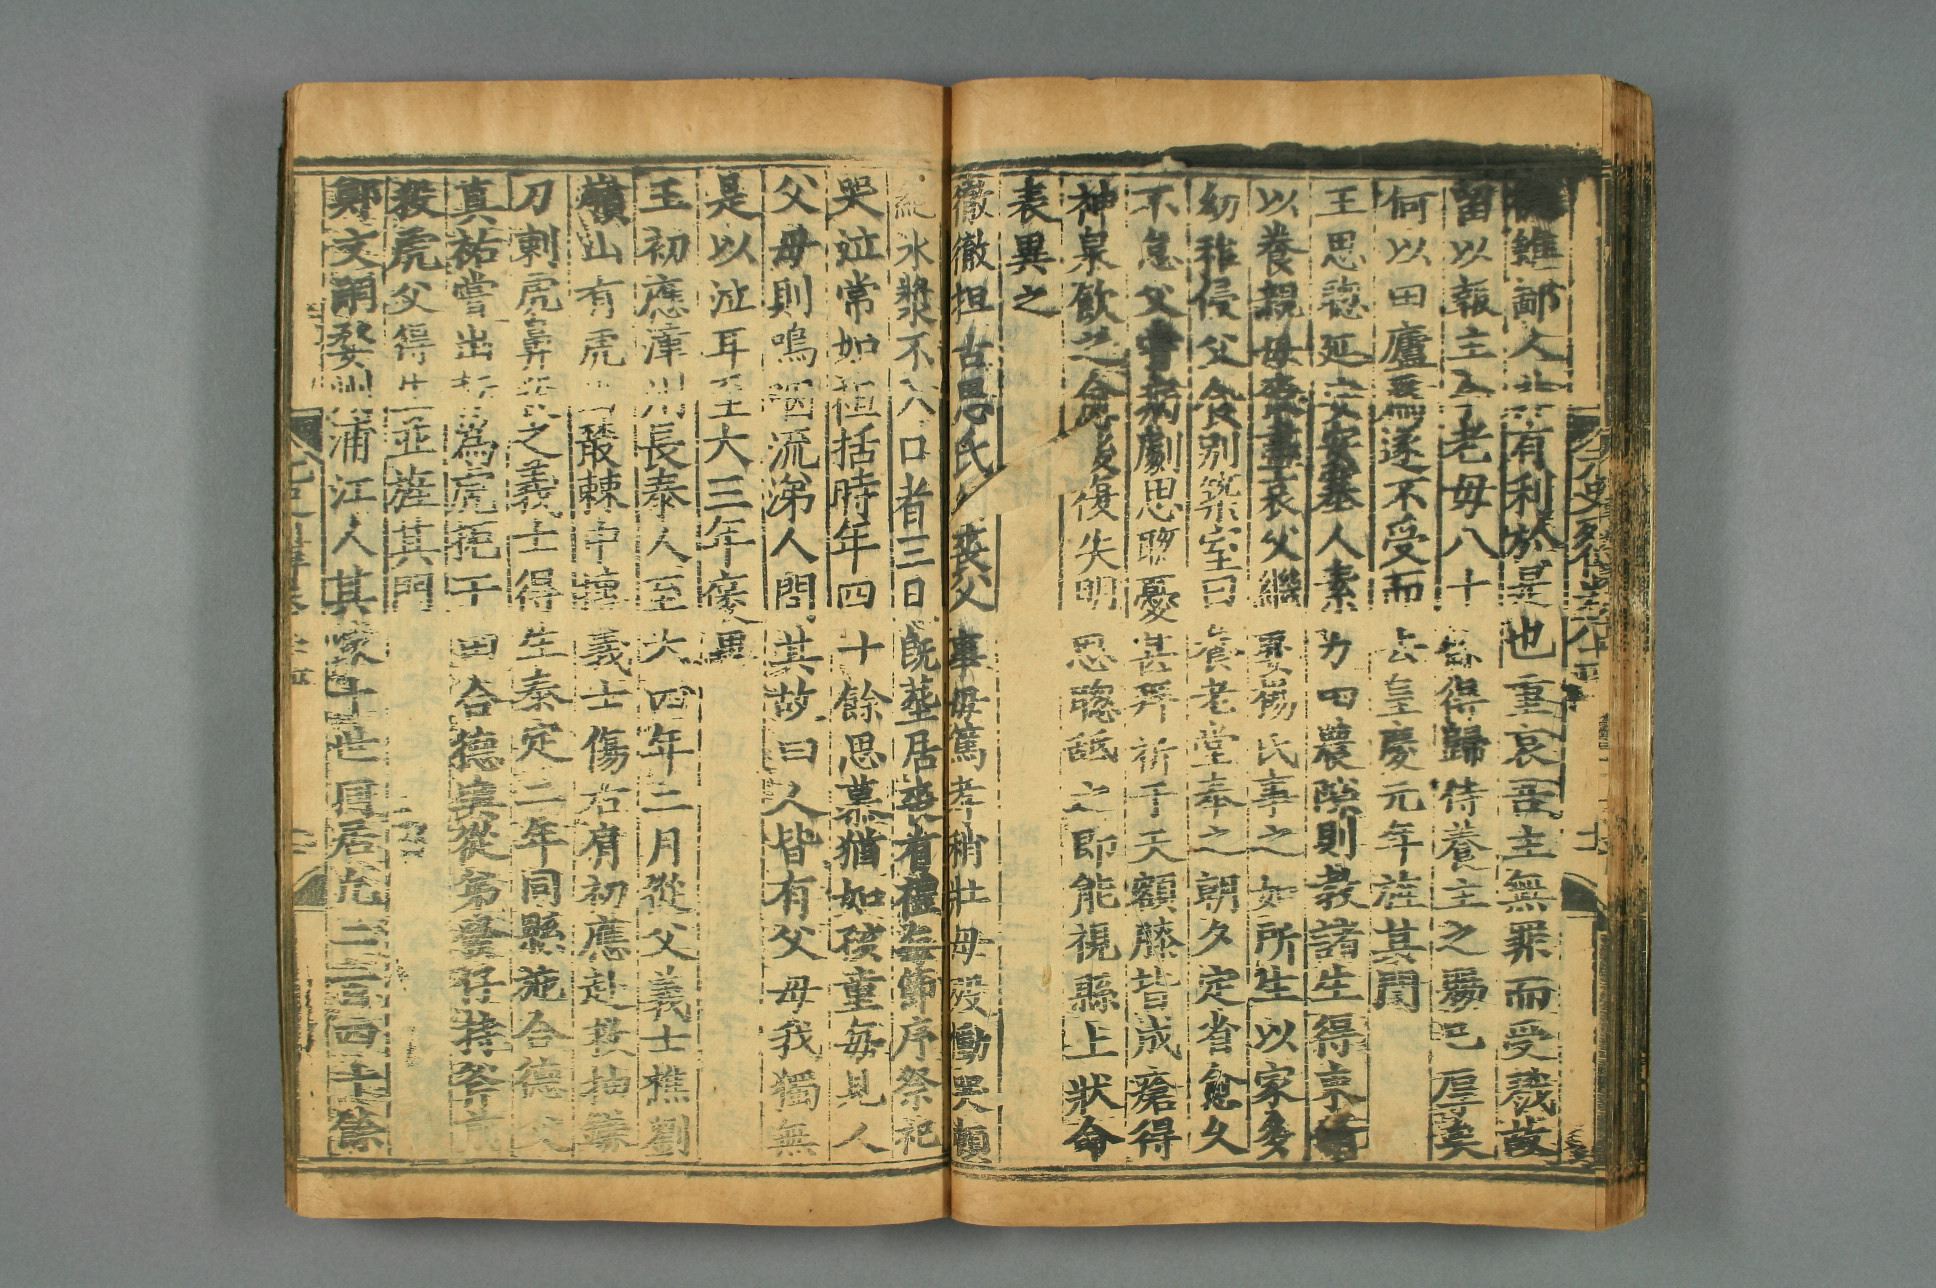 雖鄙人非有利於是也重哀吾主無罪而受戮故
留以報主今老母八十餘得歸侍養主之賜已厚矣
何以田廬爲遂不受而去皇慶元年旌其閭
王思聰延安安塞人素力田農隙則教諸生得束脩
以養親母喪盡哀父繼娶楊氏事之如所生以家多
幼稚侵父食別築室曰養老堂奉之朝夕定省愈久
不怠父嘗病劇思聰憂甚拜祈于天額膝皆成瘡得
神泉飲之愈後復失明思聰舐之即能視縣上狀命
表異之
徹徹担古思氏喪父事母篤孝稍壯母歿慟哭頓
絕水漿不入口者三日旣塟居喪有禮每節序祭祀
哭泣常如袒括時年四十餘思慕猶如孩童每見人
父母則嗚咽流涕人問其故曰人皆有父母我獨無
是以泣耳至大三年褒異
王初應漳州長泰人至大四年二月從父義士樵劉
嶺山有虎出叢棘中搏義士傷右肩初應赴救抽鎌
刀刺虎鼻殺之義士得生泰定二年同縣施合德父
真祐嘗出耘爲虎扼于田合德與從弟發仔持斧前
殺虎父得生並旌其門
鄭文嗣婺州浦江人其家十世同居凡二百四十餘